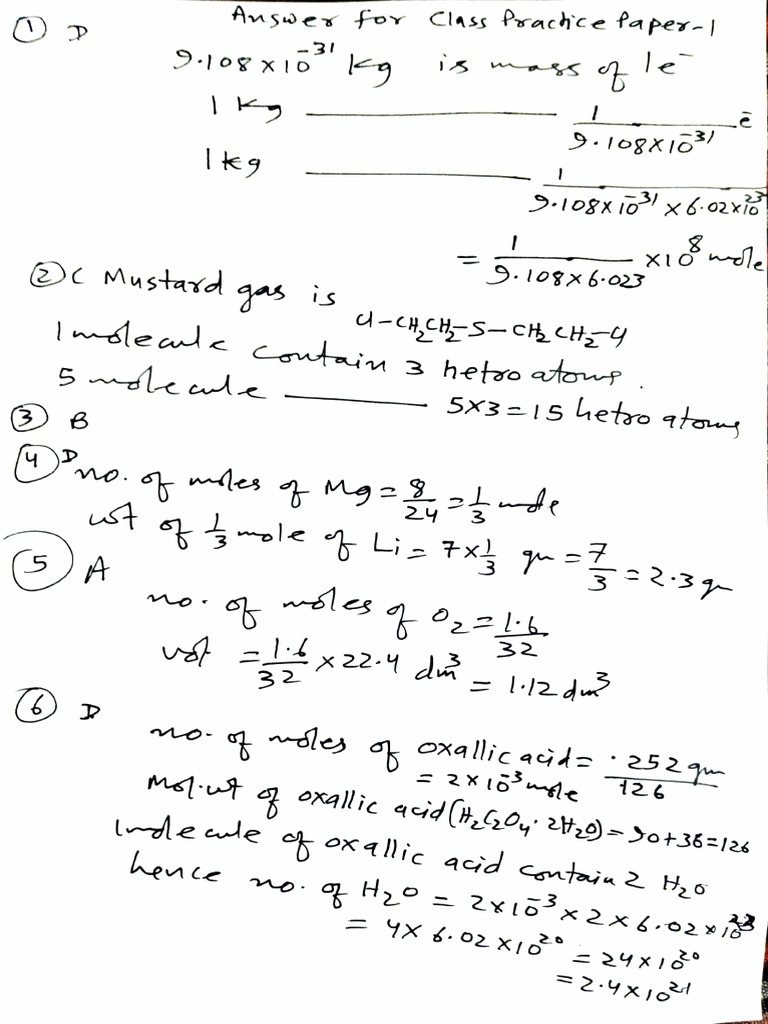 Answer for Class Practice Paper-1
① D
9.108×10⁻³¹ kg is mass of 1e⁻
1 kg ——— 1/(9.108×10⁻³¹) e̅
1 kg ——— 1/(9.108×10⁻³¹ × 6.02×10²³)
= 1/(9.108×6.023) ×10⁸ mole
② C Mustard gas is
Cl-CH₂CH₂-S-CH₂CH₂-Cl
1 molecule contain 3 hetro atoms.
5 molecule ——— 5×3=15 hetro atoms
③ B
④ D no. of moles of Mg = 8/24 = 1/3 mole
wt of 1/3 mole of Li = 7×1/3 gm = 7/3 = 2.3 gm
⑤ A
no. of moles of O₂ = 1.6/32
vol = 1.6/32 × 22.4 dm³ = 1.12 dm³
⑥ D
no. of moles of oxallic acid = .252 gm/126
= 2×10⁻³ mole
Mol. wt of oxallic acid (H₂C₂O₄·2H₂O) = 90+36=126
1 molecule of oxallic acid contain 2 H₂O
hence no. of H₂O = 2×10⁻³×2×6.02×10²³
= 4×6.02×10²⁰ = 24×10²⁰
= 2.4×10²¹